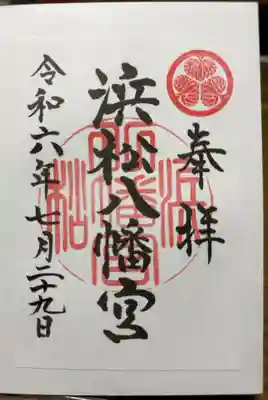 奉拝
浜松八幡宮
令和六年七月二十九日